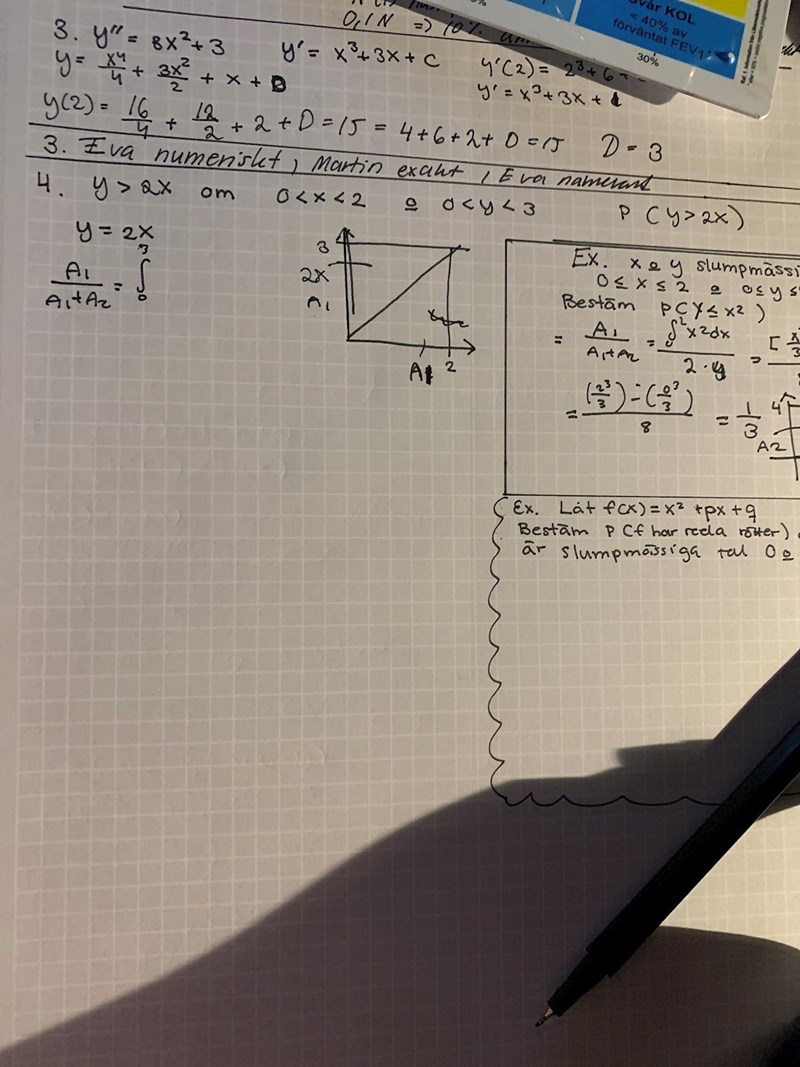 0,1N => 10%
svår KOL
< 40% av
förväntat FEV1
30%
3. y'' = 3x² + 3 y' = x³ + 3x + C y'(2) = 2³ + 6
y = x⁴/4 + 3x²/2 + x + D y' = x³ + 3x + 1
y(2) = 16/4 + 12/2 + 2 + D = 15 = 4 + 6 + 2 + D = 15 D = 3
3. Eva numeriskt, Martin exakt, Eva
4. y > 2x om 0 < x < 2 o 0 < y < 3 P (y > 2x)
y = 2x
A₁/(A₁+A₂) = ∫₀³
3
2x
A₁
x
2
Ex. x o y slumpmässi
0 ≤ x ≤ 2 o 0 ≤ y ≤
Bestäm P(Y ≤ x²)
= A₁/(A₁+A₂) = ∫₀² x² dx / 2·4 = [x³/3
= ((2³/3) - (0³/3))/8 = 1/3
4
A2
Ex. Låt f(x) = x² + px + q
Bestäm P(f har reella rötter)
är slumpmässiga tal 0 o